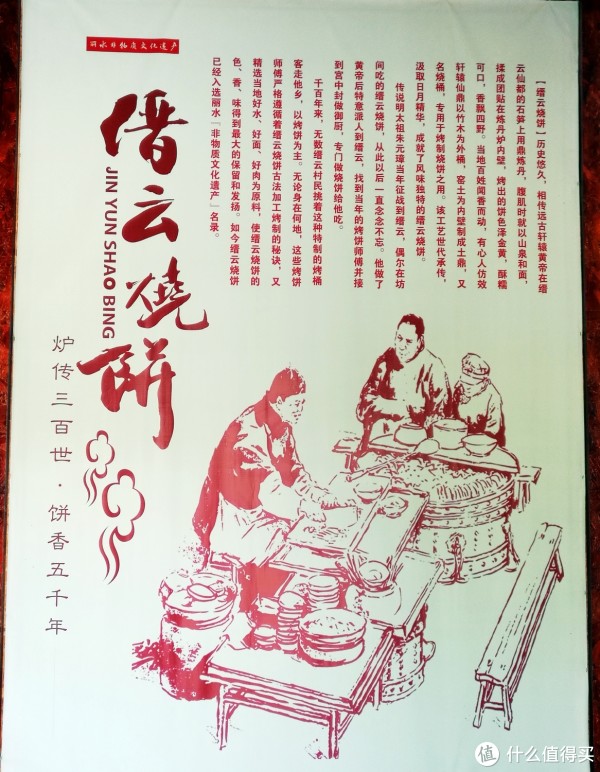 丽水非物质文化遗产
缙云燒餅
JIN YUN SHAO BING
炉传三百世·饼香五千年
【缙云烧饼】历史悠久,相传远古轩辕黄帝在缙
云仙都的石笋上用鼎炼丹,腹肌时就以山泉和面,
揉成团贴在炼丹炉内壁,烤出的饼色泽金黄,酥糯
可口,香飘四野。当地百姓闻香而动,有心人仿效
轩辕仙鼎以竹木为外桶,窑土为内壁制成土鼎,又
名烧桶,专用于烤制烧饼之用。该工艺世代承传,
汲取日月精华,成就了风味独特的缙云烧饼。
传说明太祖朱元璋当年征战到缙云,偶尔在坊
间吃的缙云烧饼,从此以后一直念念不忘。他做了
黄帝后特意派人到缙云,找到当年的烤饼师傅并接
到宫中封做御厨,专门做烧饼给他吃。
千百年来,无数缙云村民挑着这种特制的烤桶
客走他乡,以烤饼为主。无论身在何地,这些烤饼
师傅严格遵循着缙云烧饼古法加工烤制的秘诀,又
精选当地好水、好面、好肉为原料,使缙云烧饼的
色、香、味得到最大的保留和发扬。如今缙云烧饼
已经入选丽水『非物质文化遗产』名录。
值 什么值得买